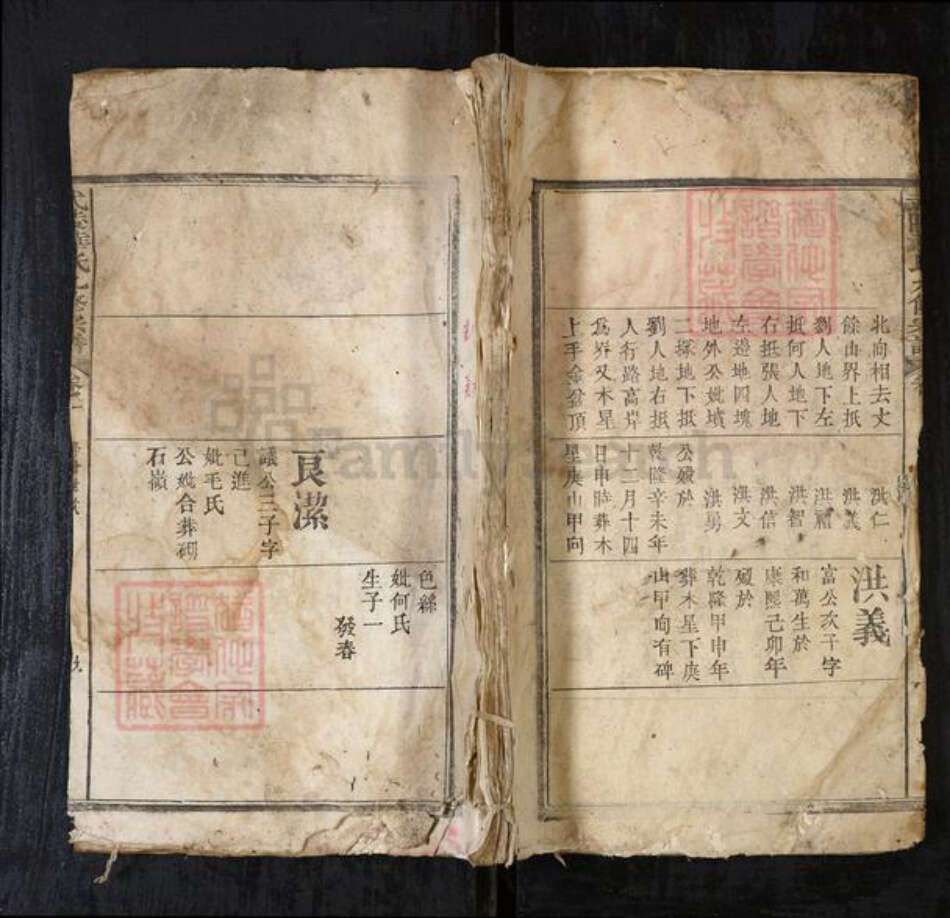 北向相去丈
餘山界上抵
劉人地下左
抵何人地下
右抵張人地
左邊地四塊
地外公妣墳
二塚地下抵
劉人地右抵
人行路高岸
為界又木星
上手金盆頂
洪仁
洪義
洪禮
洪智
洪信
洪文
洪男
公歿於
乾隆辛未年
十二月十四
日申時葬木
星庚山甲向
洪義
富公次子字
和萬生於
康熙己卯年
歿於
乾隆甲申年
葬木星下庚
山甲向有碑
良潔
議公三子字
己進
妣毛氏
公妣合葬
石嶺
色縣
妣何氏
生子一
發春
FamilySearch